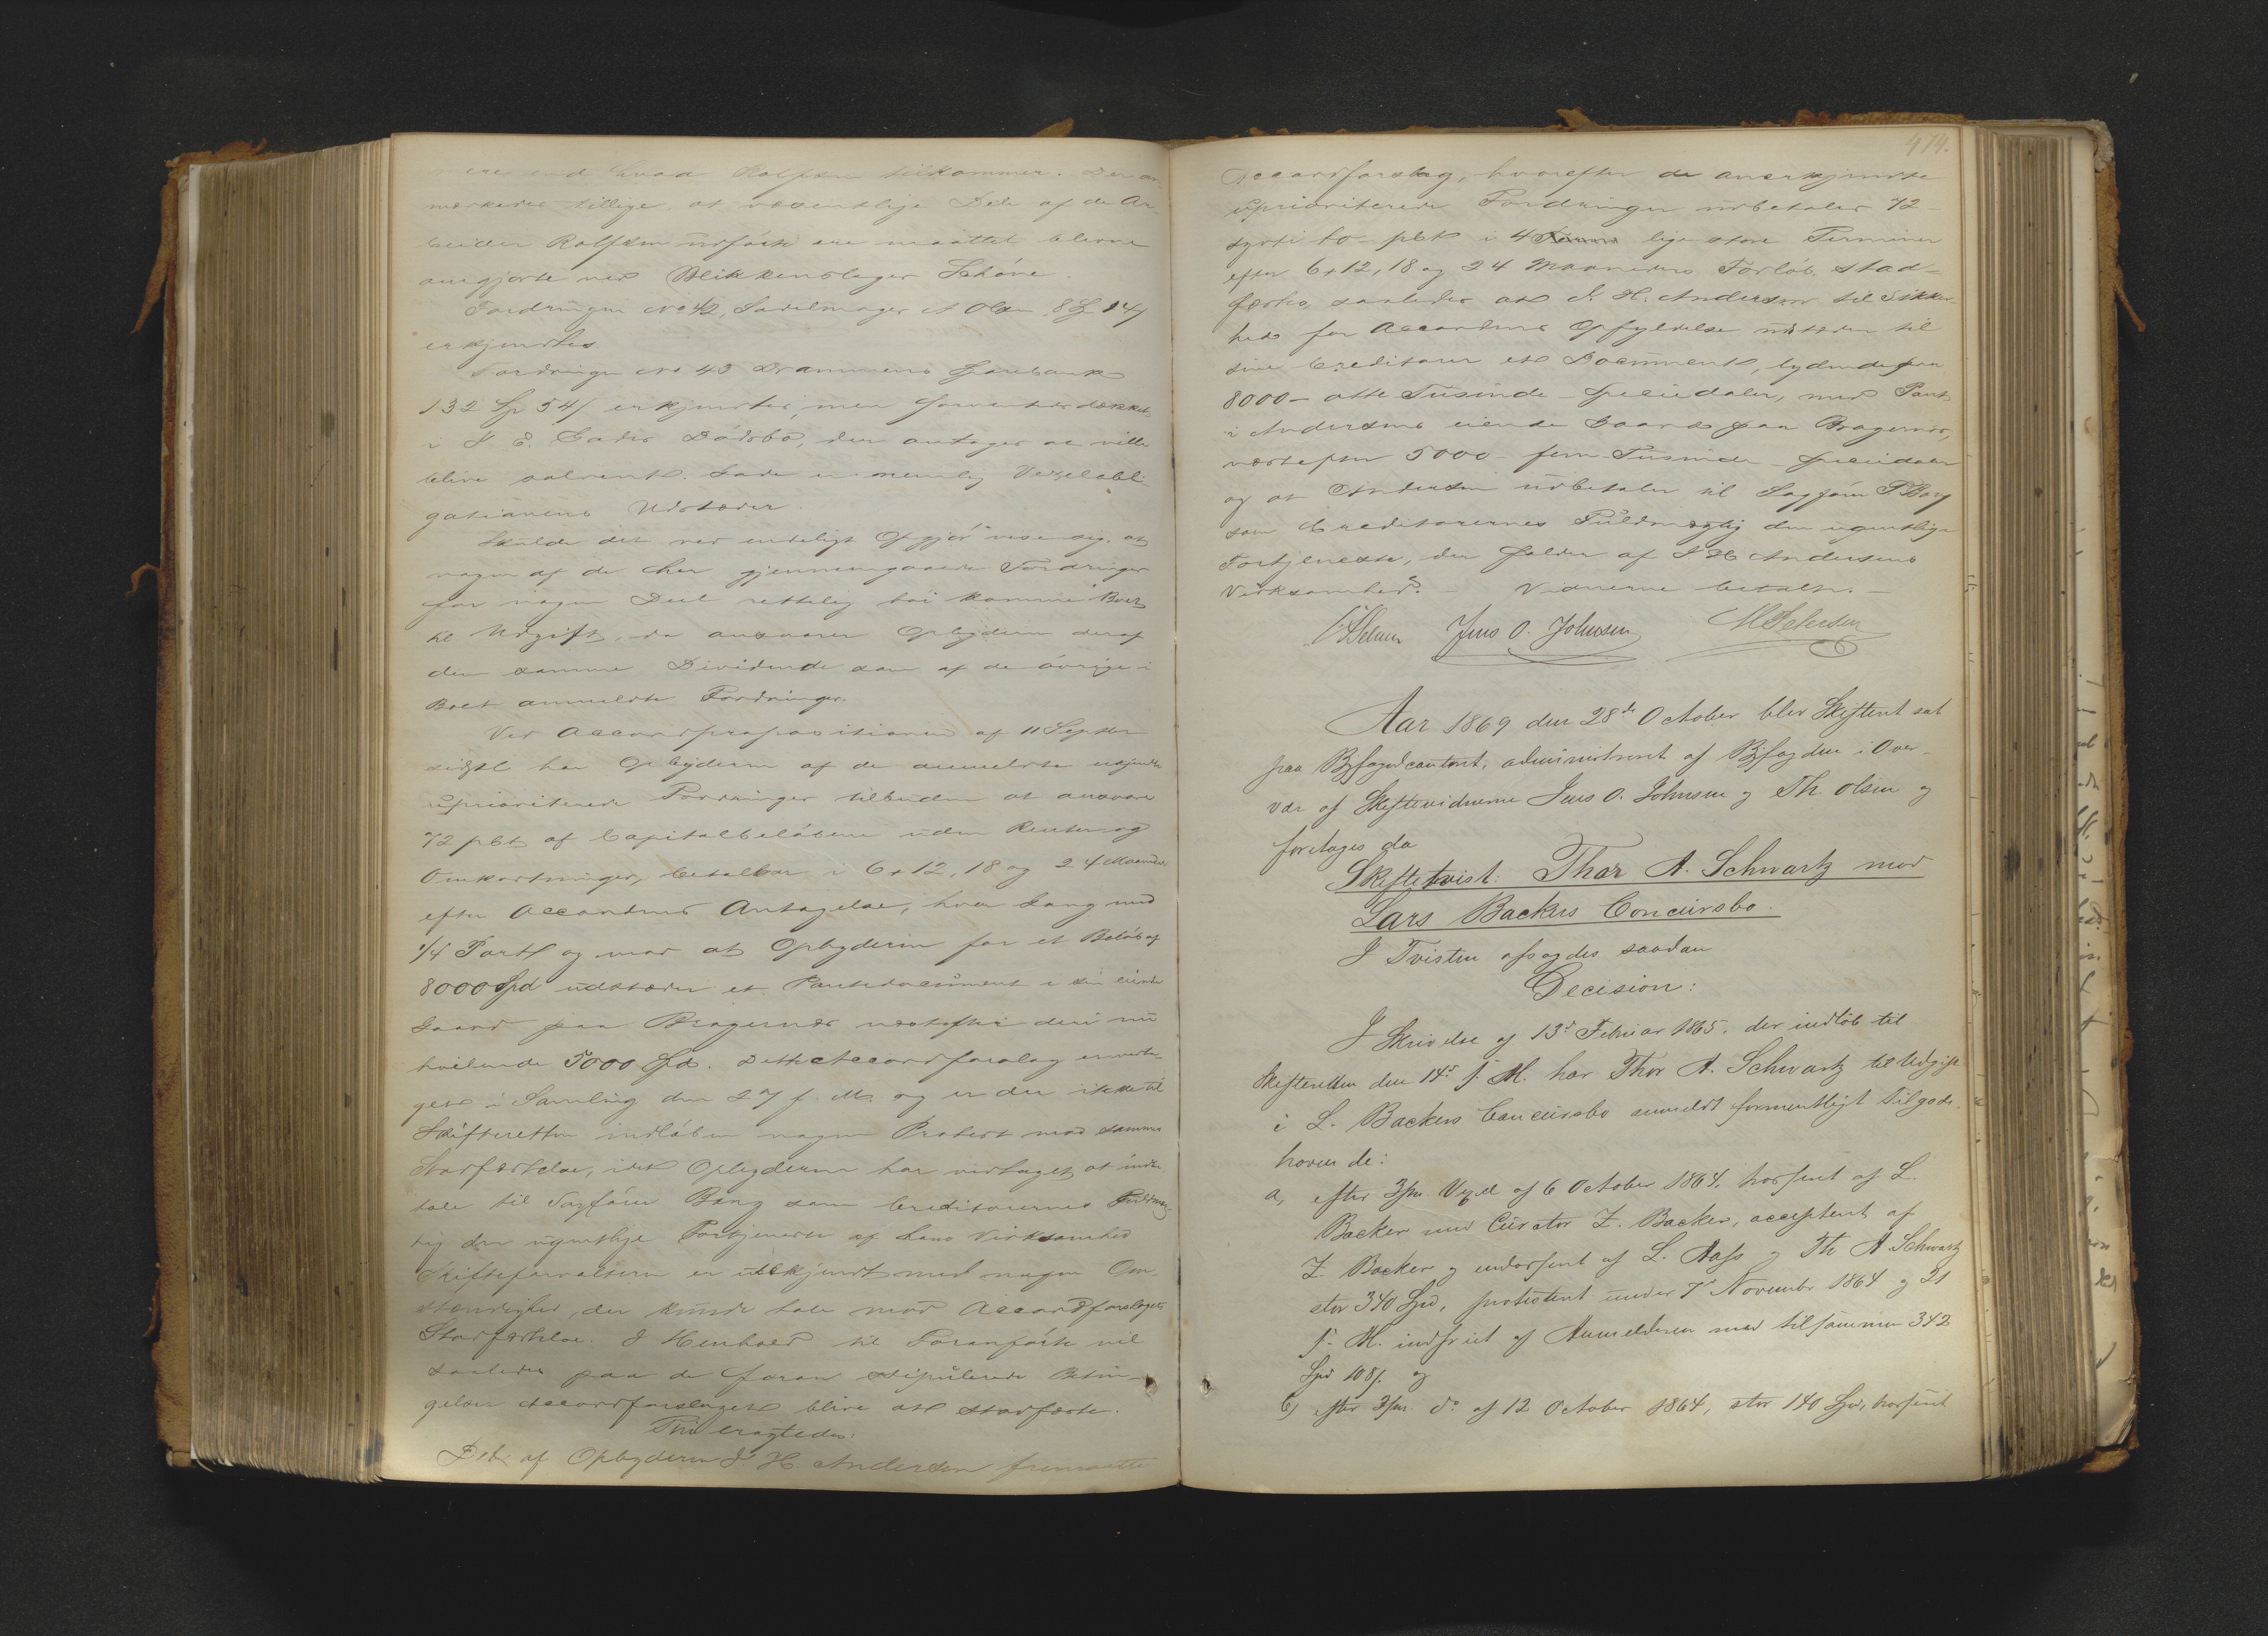 mere end hvad Rolfsen tilkommer. Der an-
mærkedes tillige, at væsentlige Dele af de Ar-
beider Rolfsen udførte ere maattet blevne
omgjorte ved Blikkenslager Schøne.
Fordringen No 42, Sadelmager A Olsen 8 Sp 14/
erkjendtes.
Fordringen No 43 Drammens Sparebank
132 Sp 54/ erkjendtes, men forventes dækket
i Dødsbo, der antages at ville
blive solvent. er nemlig Vexelobli-
gationens Udsteder.
Skulde det ved endeligt Opgjør vise sig, at
nogen af de her gjennemgaaede Fordringer
for nogen Deel rettelig bør komme Boet
til Udgift, da ansvarer Opbyderen deraf
den samme Dividende som af de øvrige i
Boet anmeldte Fordringer.
Ved Accordpropositionen af 11 Septbr
sidstl har Opbyderen af de anmeldte
uprioriterede Fordringer tilbuden at ansvare
72 pCt af Capitalbeløbene uden Renter og
Omkostninger, betalbar i 6, 12, 18 og 24 Maaneder
efter Accordens Antagelse, hver Gang med
1/4 Part og mod at Opbyderen for et Beløb af
8000 Spd udsteder et Pantedocument i sin eiende
Gaard paa Bragernæs næstefter deri nu
heftende 5000 Spd. Dette Accordforslag
i Samling den 27 f. M. og er der ikke til
Skifteretten indløben nogen Protest mod sammes
Stadfæstelse, idet Opbyderen har vedtaget at ind
tale til Sagfører Borg som Creditorernes Fuldmæg-
tig den ugentlige Fortjeneste af hans Virksomhed
Skifteforvalteren er ubekjendt med nogen Om-
stændighed, der kunde tale mod Accordforslagets
Stadfæstelse. I Henhold til Foranførte vil
saaledes paa de foran stipulerede Betin-
gelser Accordforslaget blive at stadfæste.
Thi eragtedes:
Det af Opbyderen J H. Andersen fremsatte
474.
Accordforslag, hvorefter de anerkjendte
uprioriterede Fordringer udbetales 72
sytti to pCt i 4 lige store Terminer
efter 6, 12, 18 og 24 Maaneders Forløb, stad-
fæstes, saaledes at J. H. Andersen til Sikker-
hed for Accordens Opfyldelse udsteder til
sine Creditorer et Document, lydende paa
8000 – otte Tusinde – Speciedaler, med Pant
i Andersens eiende Gaard paa Bragernæs,
næstefter 5000 – fem Tusinde – Speciedaler
og at Andersen udbetaler til Sagfører Borg
som Creditorernes Fuldmægtig den ugentlige
Fortjeneste, der falder af J H Andersens
Virksomhed. – Vidnerne betalte. –
Jens O. Johnsen M Pehrsen
Aar 1869 den 28de October blev Skifteret sat
paa Byfogedcontoret, administreret af Byfogden i Over-
vær af Skiftevidnerne Jens O. Johnsen og Th. Olsen og
foretoges da
Skiftetvist: Thor A. Schwartz mod
Lars Backers Concursbo.
I Tvisten afsagdes saadan
Decision:
I Skrivelse af 13de Februar 1865, der indløb til
Skifteretten den 14de s. M. har Thor A. Schwartz til Udgift
i L. Backers Concursbo anmeldt formentligt Tilgode-
havende:
a, efter 3/m. Vexel af 6 October 1864, trasseret af L.
Backer med Curator Z. Backer, acceptert af
Z. Backer og endosseret af L. Aass og Th A Schwartz
stor 340 Spd, protesteret under 7de November 1864 og 21
s. M. indfriet af Anmelderen med tilsammen 342
Spd 108/. og
b, efter 3/m. do af 12 October 1864, stor 140 Spd, trasseret